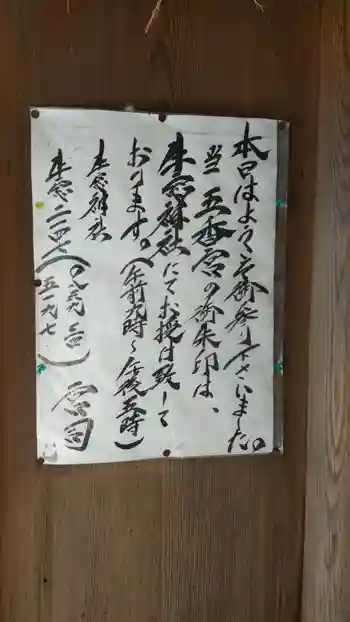 本日はようこそ御参り下さいました。
当 五香宮の御朱印は、
牛窓神社にてお授け致して
おります。(午前九時〜午後五時)
牛窓神社
牛窓二一四七(〇八六九 三四 五一九七)
宮司